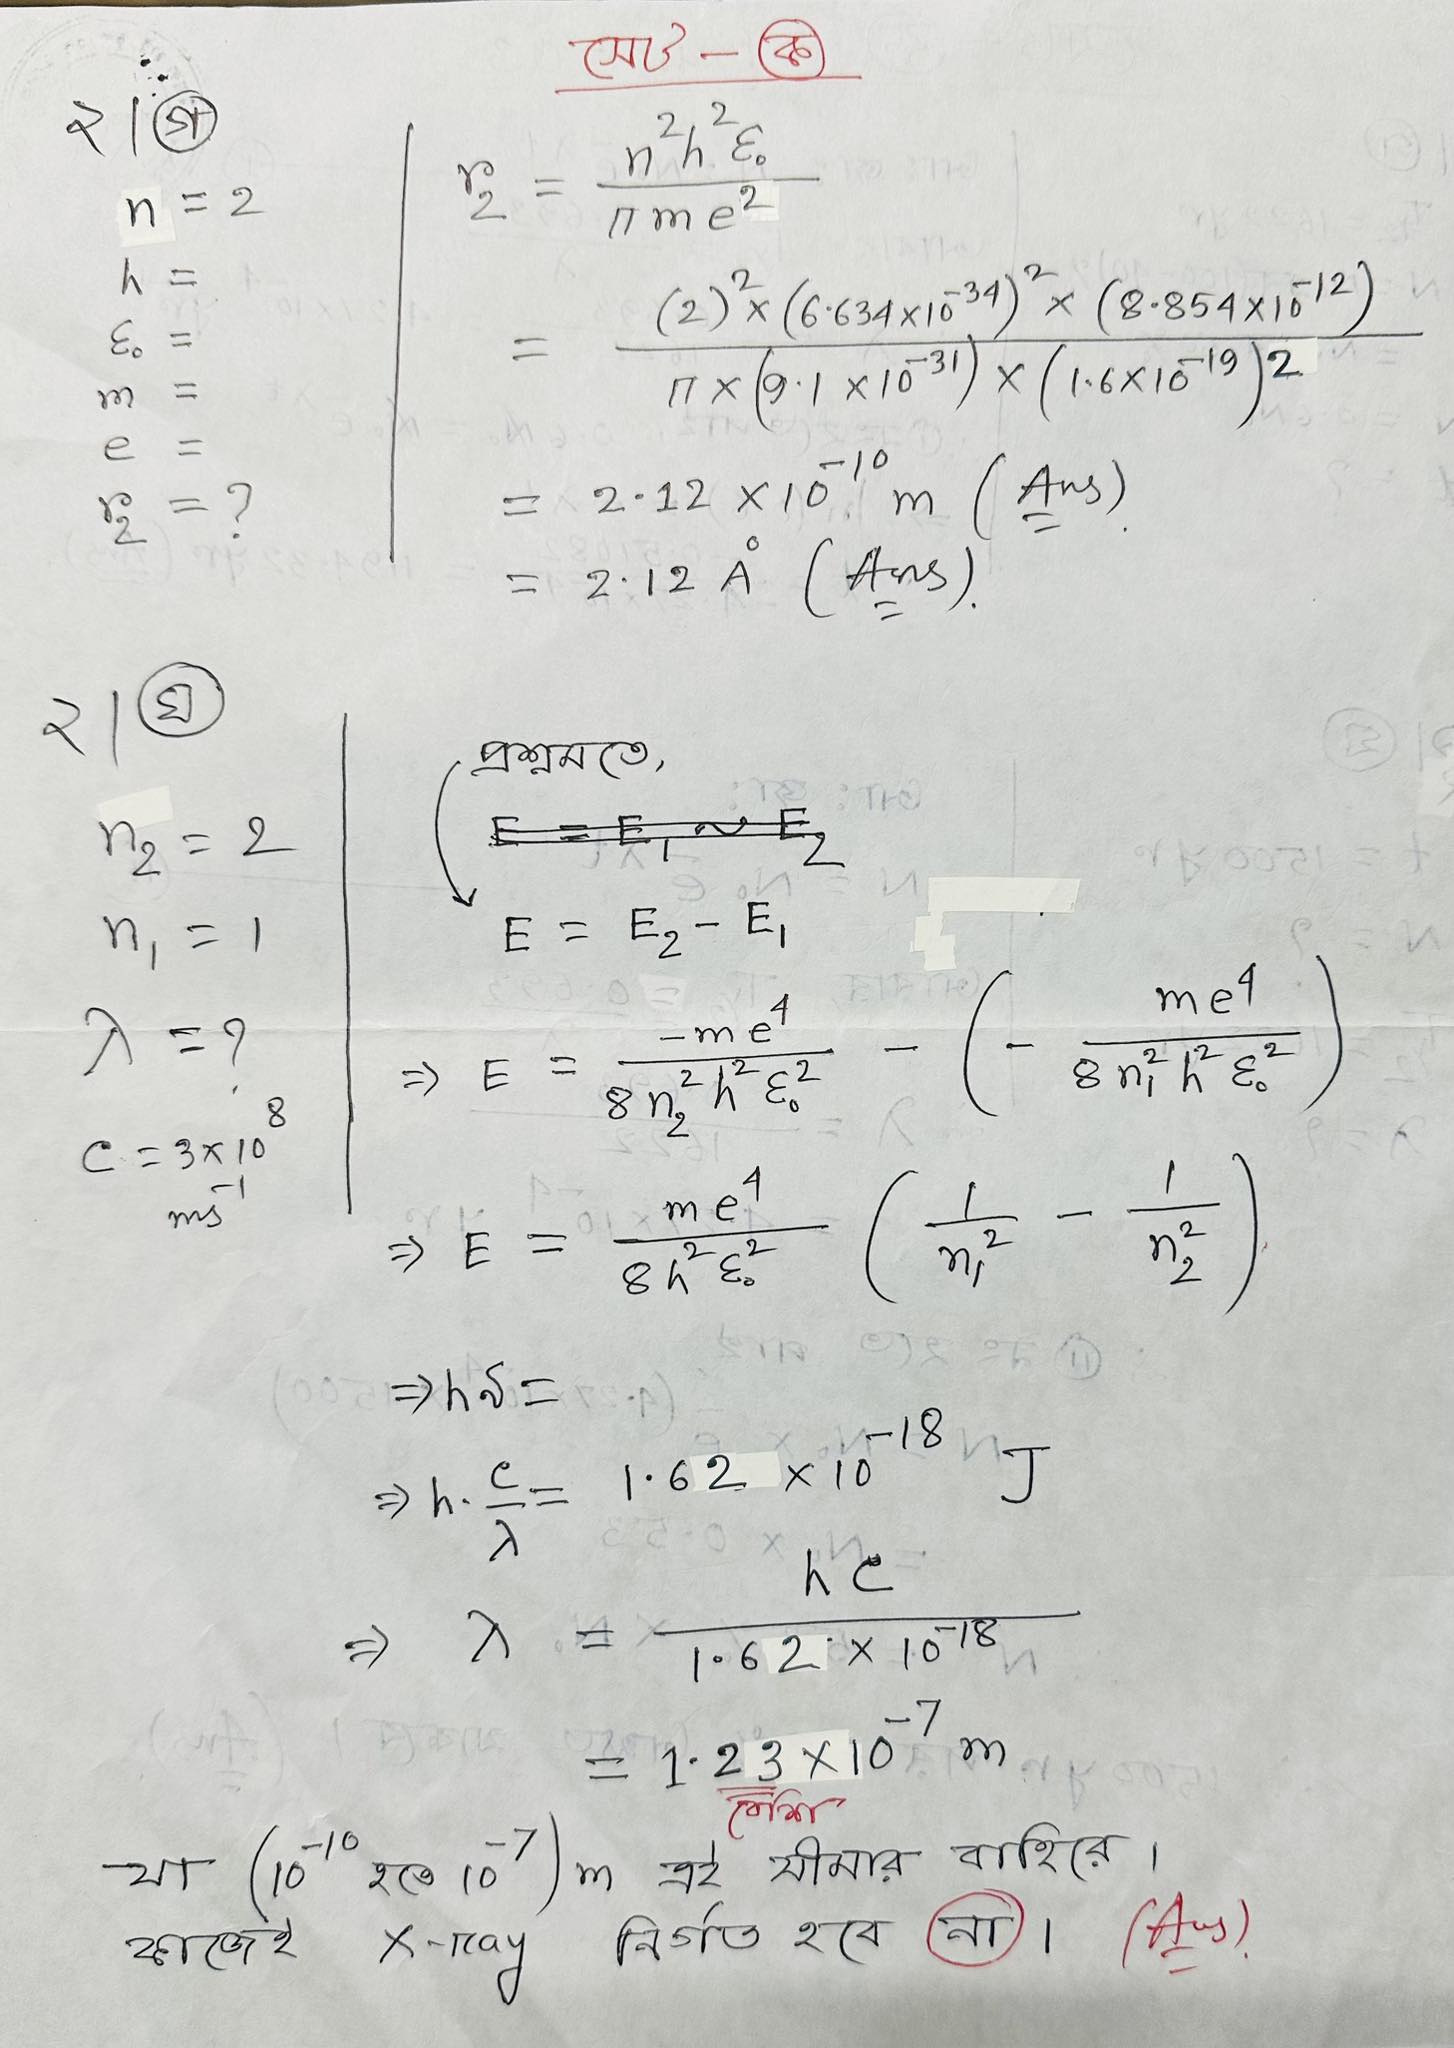 সেট - (ক)
২। (গ)
n = 2
h =
ε₀ =
m =
e =
r₂ = ?
r₂ = n²h²ε₀ / πme²
= (2)² × (6.634×10⁻³⁴)² × (8.854×10⁻¹²) / π × (9.1×10⁻³¹) × (1.6×10⁻¹⁹)²
= 2.12 × 10⁻¹⁰ m (Ans).
= 2.12 Å (Ans).
২। (ঘ)
n₂ = 2
n₁ = 1
λ = ?
c = 3×10⁸
ms⁻¹
প্রশ্নমতে,
E = E₁ ~ E₂
E = E₂ - E₁
⇒ E = -me⁴ / 8n₂²h²ε₀² - (- me⁴ / 8n₁²h²ε₀²)
⇒ E = me⁴ / 8h²ε₀² (1/n₁² - 1/n₂²)
⇒ hν =
⇒ h. c/λ = 1.62 × 10⁻¹⁸ J
⇒ λ = hc / 1.62 × 10⁻¹⁸
= 1.23 × 10⁻⁷ m
বেশি
যা (10⁻¹⁰ হতে 10⁻⁷) m এই সীমার বাহিরে।
কাজেই X-ray নির্গত হবে না। (Ans).